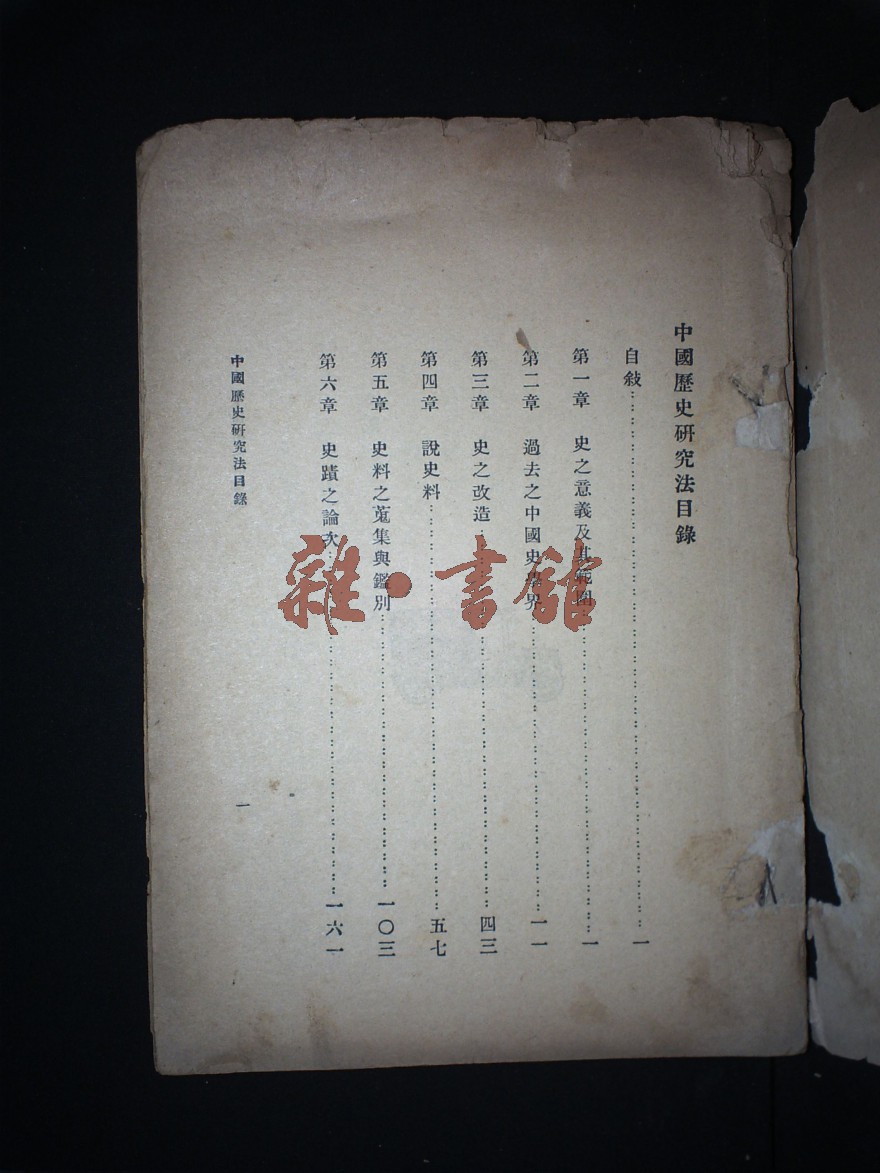 中國歷史研究法目錄
自敍……………………一
第一章　史之意義及其範圍……………………一
第二章　過去之中國史學界……………………一一
第三章　史之改造……………………四三
第四章　說史料……………………五七
第五章　史料之蒐集與鑑別……………………一〇三
第六章　史蹟之論次……………………一六一
中國歷史研究法目錄
一
雜·書館